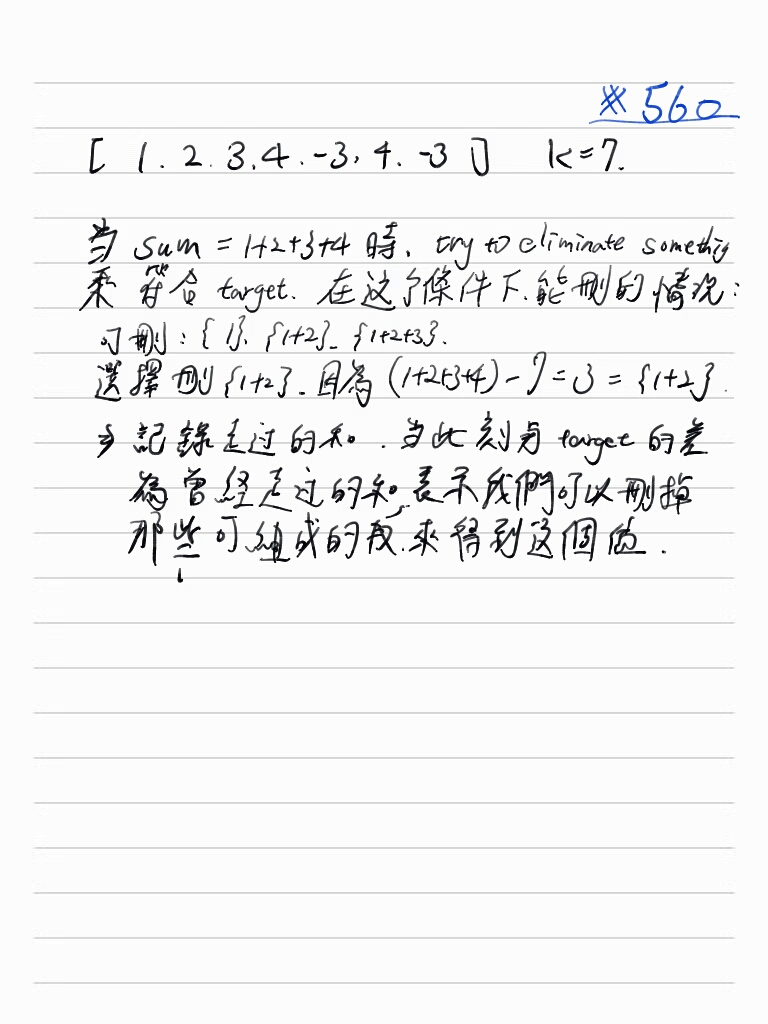 ※560
[ 1. 2. 3. 4. -3, 4. -3 ] k=7.
当 sum = 1+2+3+4 時, try to eliminate somethig
來符合 target. 在这个條件下.能刪的情況:
可刪: {1}, {1+2}, {1+2+3}.
選擇刪{1+2}. 因為 (1+2+3+4) - 7 = 3 = {1+2}.
⇒ 記錄走过的和. 当此刻与 target 的差
為曾経走过的和,表示我們可以刪掉
那些可組成的数.來得到这個值.